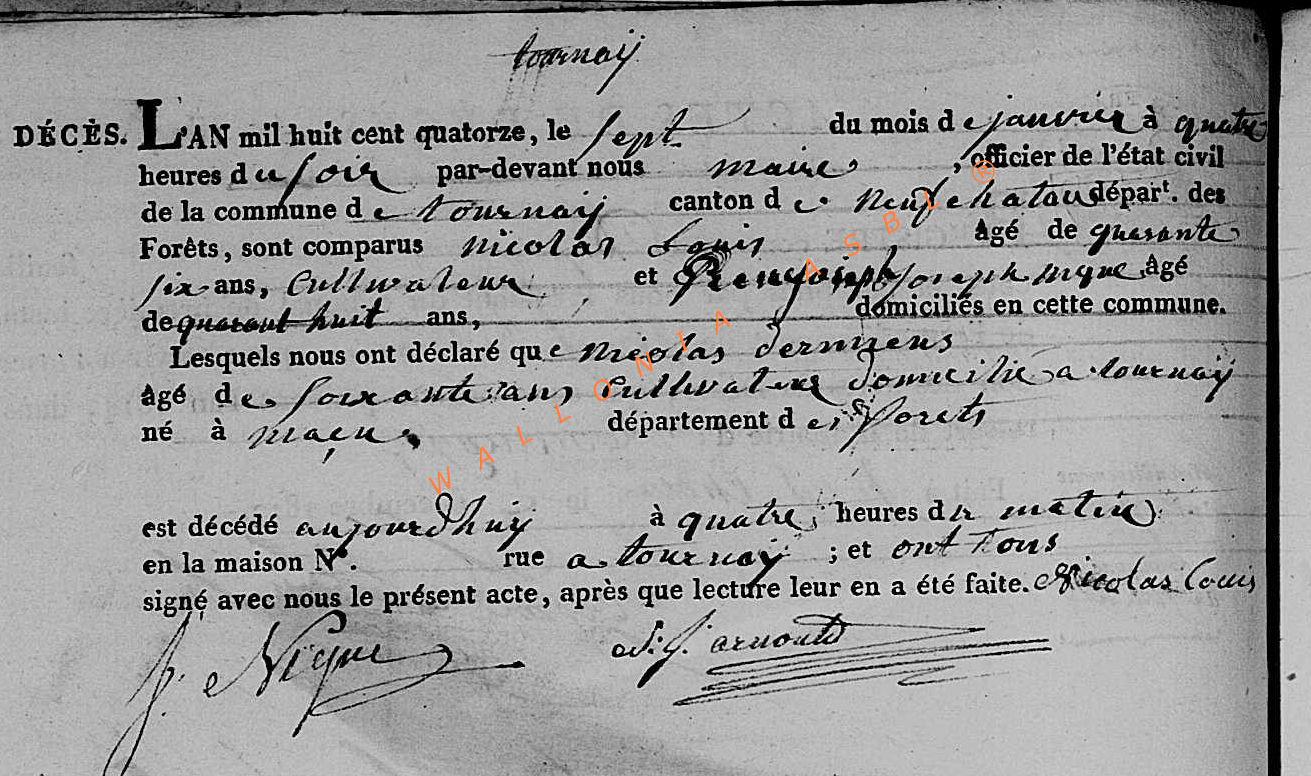 tournay
DÉCÈS. L'AN mil huit cent quatorze, le sept du mois de janvier à quatre
heures du soir par-devant nous maire , officier de l'état civil
de la commune de tournay canton de neufchatau départ. des
Forêts, sont comparus nicolas Louis , âgé de quarante
six ans, Cultivateur et joseph nique, âgé
de quarant huit ans, domiciliés en cette commune.
Lesquels nous ont déclaré que nicolas
âgé de soixante ans Cultivateur domicilié a tournay
né à département des forets
est décédé aujourdhuy à quatre heures du matin
en la maison N°. rue a tournay ; et ont tous
signé avec nous le présent acte, après que lecture leur en a été faite. Nicolas Louis
j. Nique arnould
WALLONIA ASBL ®